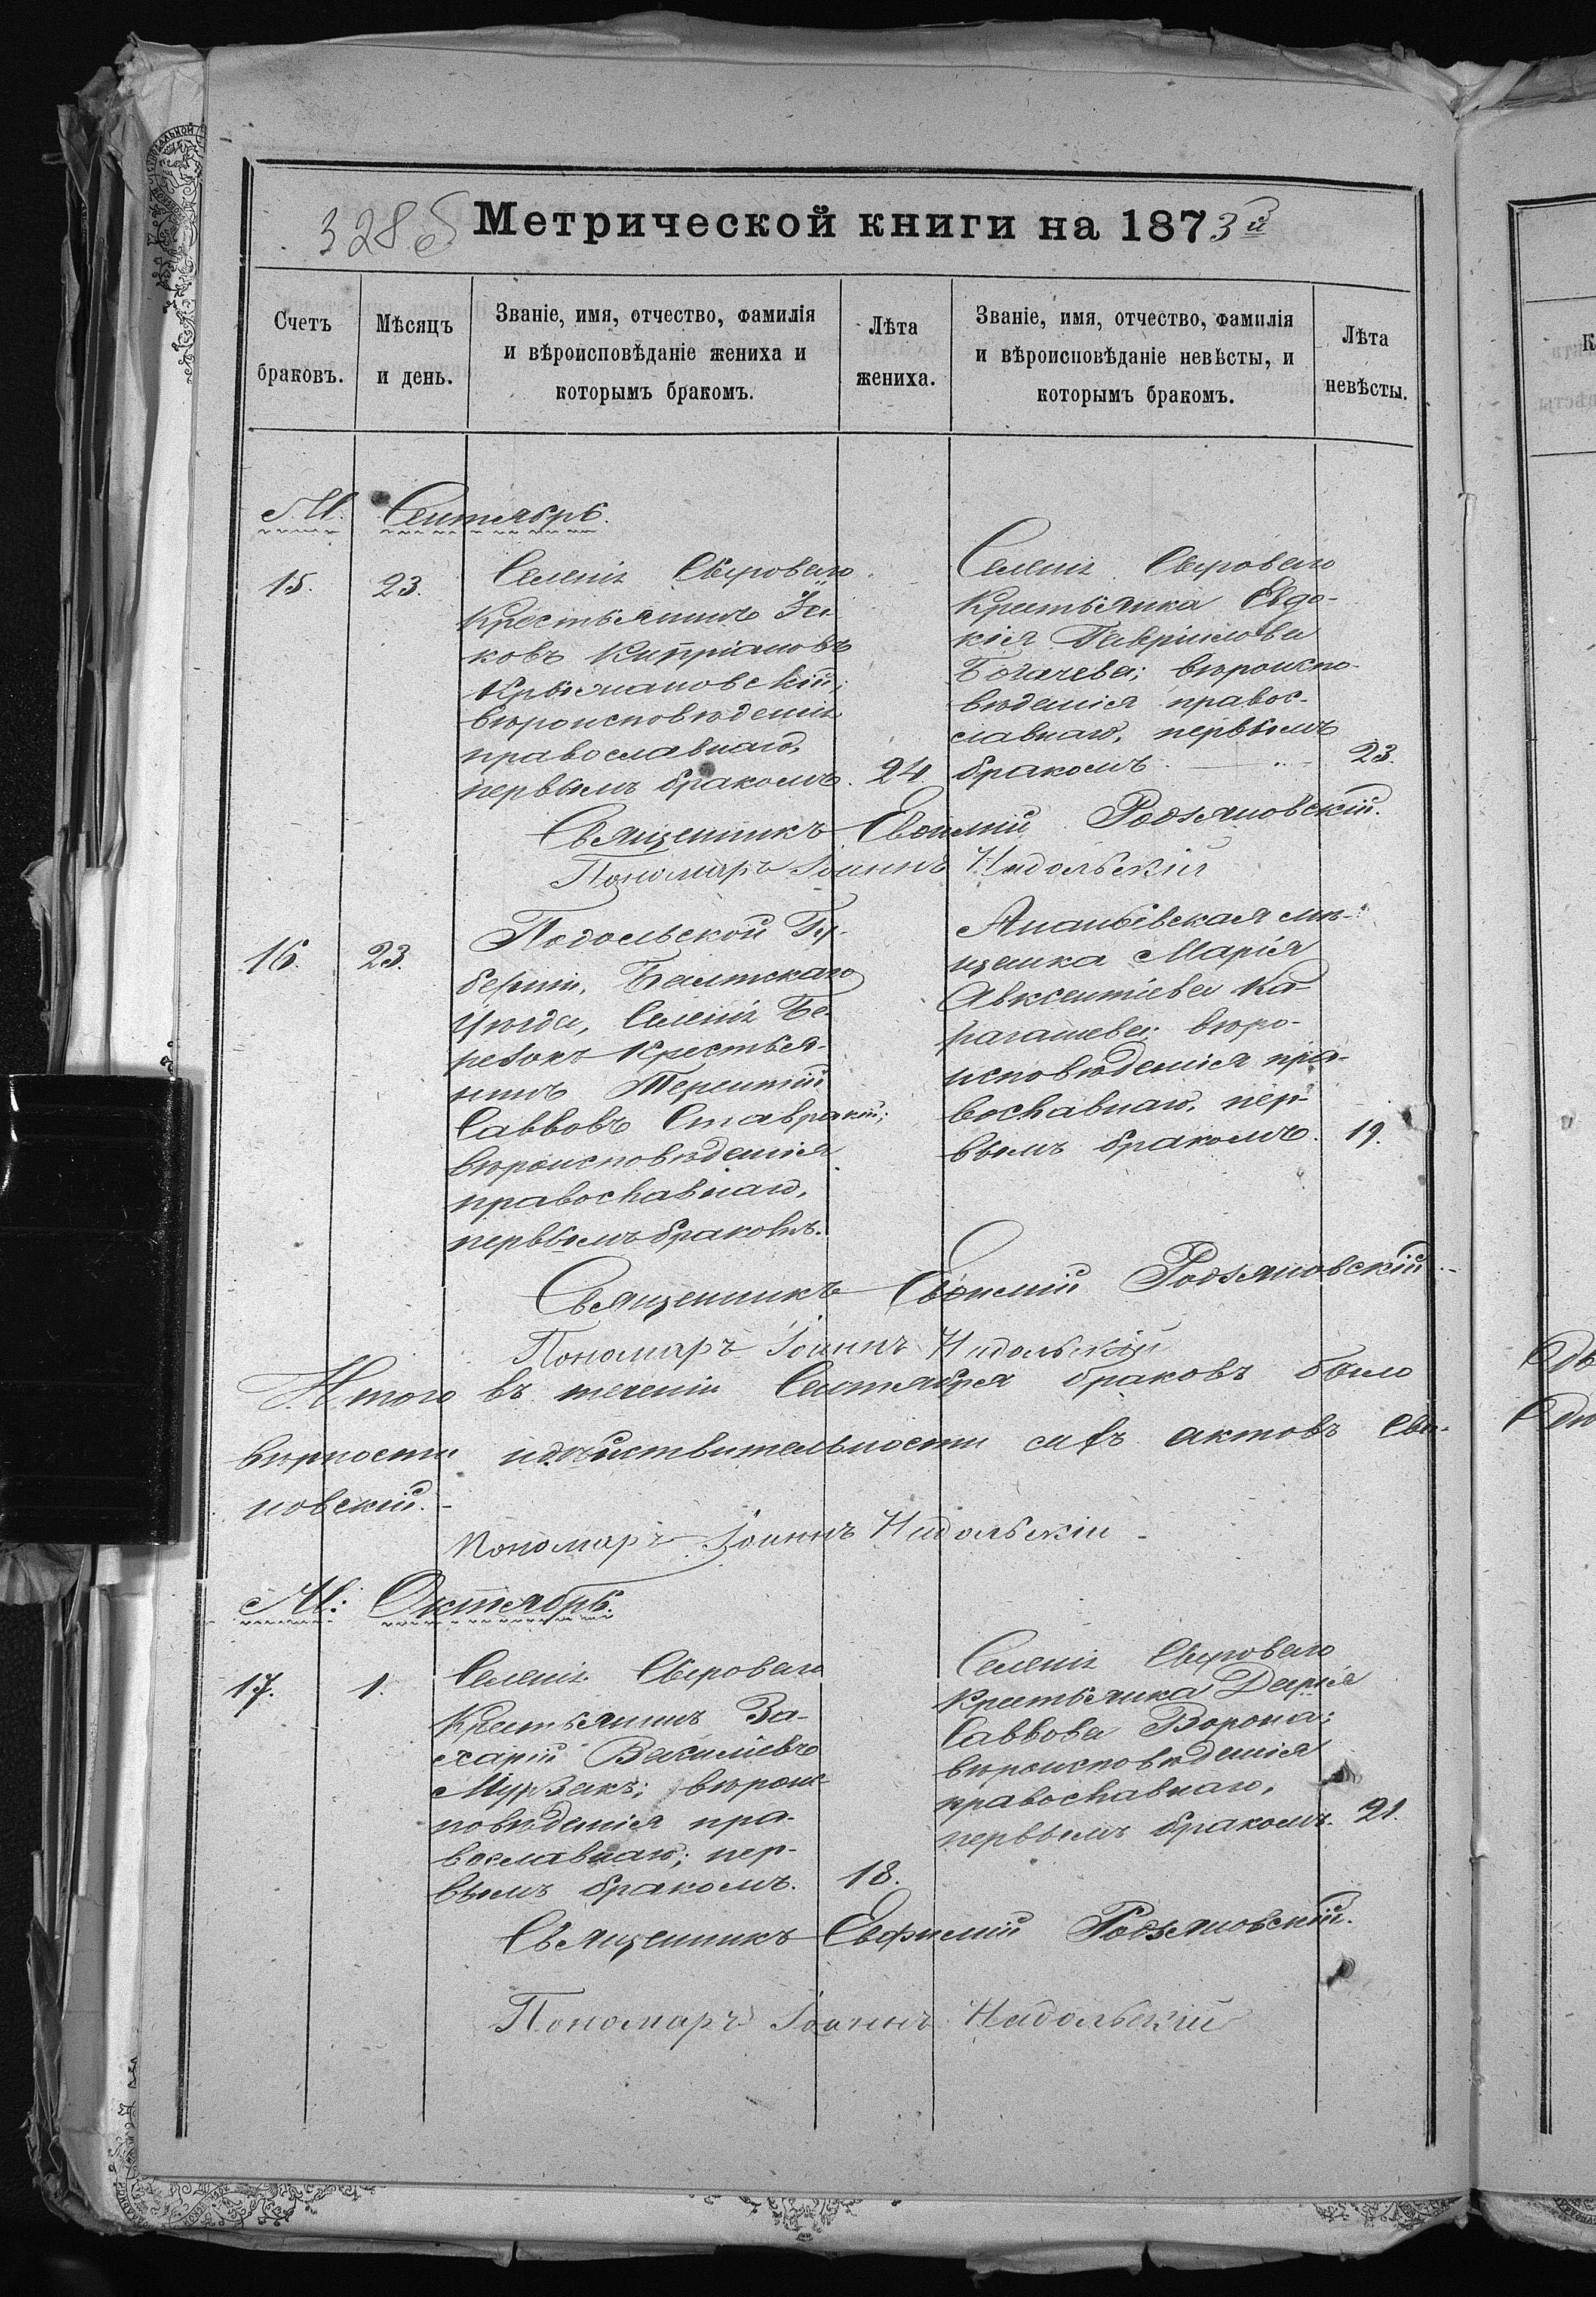 328 об Метрической книги на 1873й
Счетъ браковъ.
Мѣсяцъ и день.
Званіе, имя, отчество, фамилія
и вѣроисповѣданіе жениха и
которымъ бракомъ.
Лѣта жениха.
Званіе, имя, отчество, фамилія
и вѣроисповѣданіе невѣсты, и
которымъ бракомъ.
Лѣта невѣсты.
М. Сентябрь.
15. 23.
Селенія Сыроваго
Крестьянинъ Іа-
ковъ Кипріановъ
Крыжановскій;
вѣроисповѣденія
православнаго,
первымъ бракомъ. 24.
Селенія Сыроваго
Крестьянка Евдо-
кія Гавріилова
Богачева; вѣроиспо-
вѣденія правос-
лавнаго, первымъ
бракомъ. 23.
Священникъ Евѳимій Родзяновскій.
Пономарь Іоаннъ Надольскій
16. 23.
Подольской Гу-
берніи, Балтскаго
Уѣзда, Селенія Бе-
резокъ Крестья-
нинъ Терентій
Саввовъ Ставракій;
вѣроисповѣденія
православнаго,
первымъ бракомъ.
Ананьевская мѣ-
щанка Марія
Авксентіева Ка-
рагашева; вѣро-
исповѣденія пра-
вославнаго, пер-
вымъ бракомъ. 19.
Священникъ Евѳимій Родзяновскій
Пономарь Іоаннъ Надольскій
Итого въ теченіи Сентября браковъ было
вѣрности и дѣйствительности сихъ актовъ Свя-
новскій.
Пономарь Іоаннъ Надольскій
М: Октябрь.
17. 1.
Селенія Сыроваго
Крестьянинъ За-
харій Василіевъ
Мурзакъ; вѣроис-
повѣденія пра-
вославнаго; пер-
вымъ бракомъ. 18.
Селенія Сыроваго
Крестьянка Дарія
Саввова Ворона;
вѣроисповѣденія
православнаго,
первымъ бракомъ. 21.
Священникъ Евфимій Родзяновскій.
Пономарь Іоаннъ Надольскій